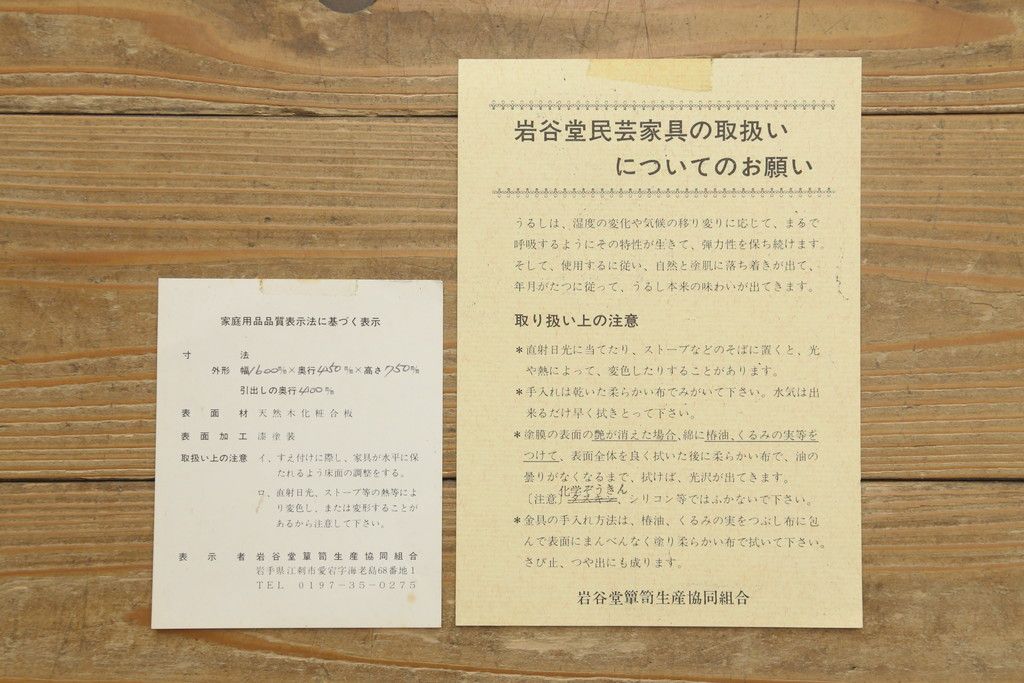 家庭用品品質表示法に基づく表示
寸法
外形 幅1600㎜×奥行450㎜×高さ750㎜
引出しの奥行400㎜
表面材 天然木化粧合板
表面加工 漆塗装
取扱い上の注意 イ、すえ付けに際し、家具が水平に保
たれるよう床面の調整をする。
ロ、直射日光、ストーブ等の熱等によ
り変色し、または変形することが
あるから注意して下さい。
表示者 岩谷堂簞笥生産協同組合
岩手県江刺市愛宕字海老島68番地1
TEL 0197-35-0275
岩谷堂民芸家具の取扱い
についてのお願い
うるしは、湿度の変化や気候の移り変りに応じて、まるで
呼吸するようにその特性が生きて、弾力性を保ち続けます。
そして、使用するに従い、自然と塗肌に落ち着きが出て、
年月がたつに従って、うるし本来の味わいが出てきます。
取り扱い上の注意
＊直射日光に当てたり、ストーブなどのそばに置くと、光
や熱によって、変色したりすることがあります。
＊手入れは乾いた柔らかい布でみがいて下さい。水気は出
来るだけ早く拭きとって下さい。
＊塗膜の表面の艶が消えた場合、綿に椿油、くるみの実等を
つけて、表面全体を良く拭いた後に柔らかい布で、油の
曇りがなくなるまで、拭けば、光沢が出てきます。
化学ぞうきん
〔注意〕 シリコン等ではふかないで下さい。
＊金具の手入れ方法は、椿油、くるみの実をつぶし布に包
んで表面にまんべんなく塗り柔らかい布で拭いて下さい。
さび止、つや出にも成ります。
岩谷堂簞笥生産協同組合